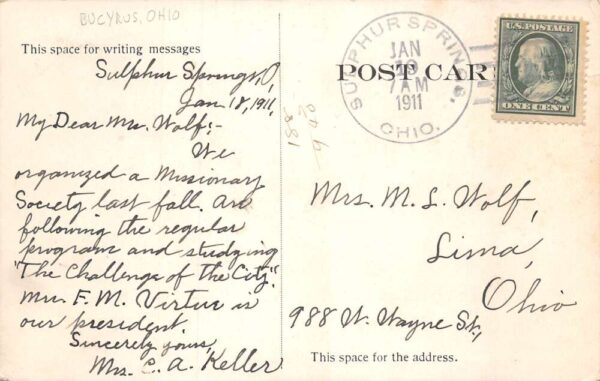 BUCYRUS, OHIO
This space for writing messages
Sulphur Springs, O,
Jan 18, 1911.
My Dear Mrs. Wolf:-
We
organized a Missionary
Society last fall. Are
following the regular
program and studying
"The Challenge of the City".
Mrs. F. M. Virtue is
our president.
Sincerely yours,
Mrs. C. A. Keller
POST CAR
SULPHUR SPRINGS,
JAN
7 AM
1911
OHIO.
U.S. POSTAGE
ONE CENT
Mrs. M. L. Wolf,
Lima,
Ohio
988 W. Wayne St.,
This space for the address.